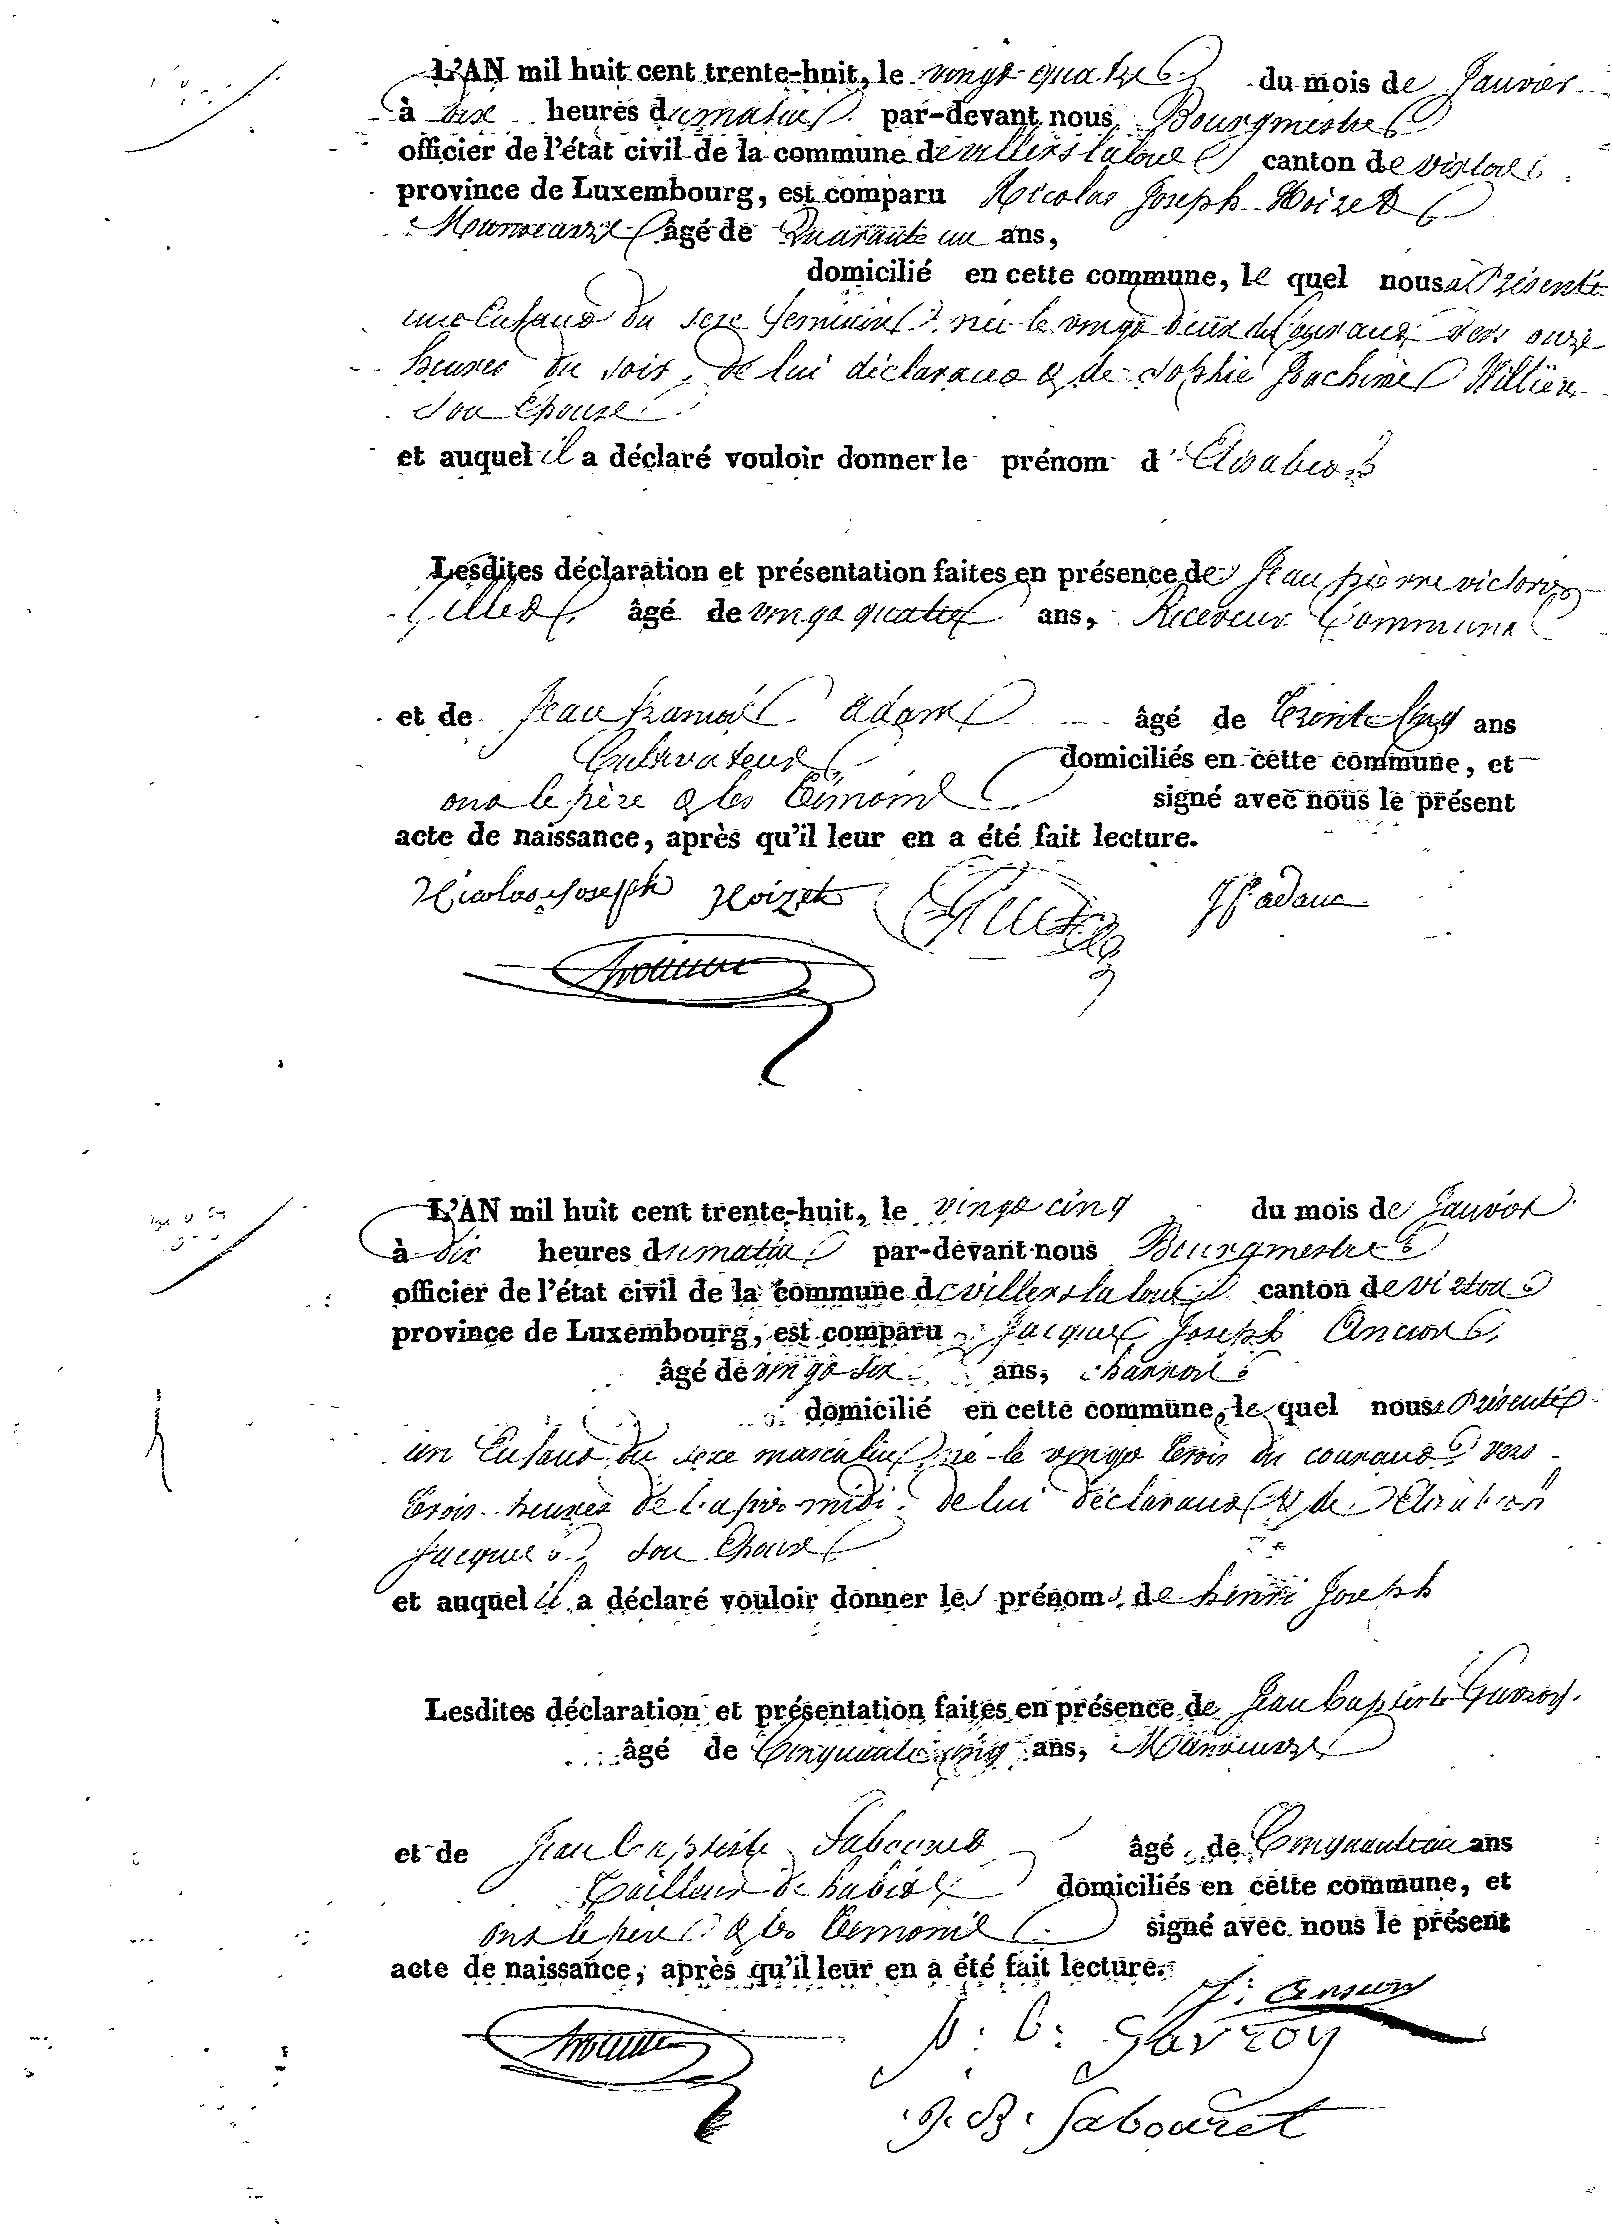 L'AN mil huit cent trente-huit, le vingt quatre du mois de Janvier
à dix heures du matin par-devant nous Bourgmestre
officier de l'état civil de la commune de villers la loue canton de virton
province de Luxembourg, est comparu Nicolas Joseph Noizet
Manoeuvre âgé de Quarante un ans,
domicilié en cette commune, le quel nous a Présenté
une Enfant du sexe feminin née le vingt deux du Courant vers onze
heures du soir, de lui déclarant & de Sophie Willien
Son Epouse
et auquel il a déclaré vouloir donner le prénom d'Elisabeth
Lesdites déclaration et présentation faites en présence de Jean pierre victor
Gilles âgé de vingt quatre ans, Receveur Communal
et de Jean francois adam âgé de Trente Cinq ans
Cultivateur domiciliés en cette commune, et
ont le père & les Témoins signé avec nous le présent
acte de naissance, après qu'il leur en a été fait lecture.
Nicolas Joseph Noizet JF adam
L'AN mil huit cent trente-huit, le vingt cinq du mois de Janvier
à dix heures du matin par-devant nous Bourgmestre
officier de l'état civil de la commune de villers la loue canton de virton
province de Luxembourg, est comparu Jacques Joseph Ancion
âgé de vingt six ans, charron
domicilié en cette commune, le quel nous a Présenté
un Enfant du sexe masculin né le vingt trois du courant vers
trois heures de l'après midi de lui déclarant & de Elisabeth
Jacques son Epouse
et auquel il a déclaré vouloir donner les prénoms de henri Joseph
Lesdites déclaration et présentation faites en présence de Jean baptiste Gavroy
âgé de Cinquante cinq ans, Manoeuvre
et de Jean baptiste Sabouret âgé de Cinquante un ans
Tailleur de habits domiciliés en cette commune, et
ont le père & les temoins signé avec nous le présent
acte de naissance, après qu'il leur en a été fait lecture.
J: Ancion
j: b: Gavroy
J. B. Sabouret